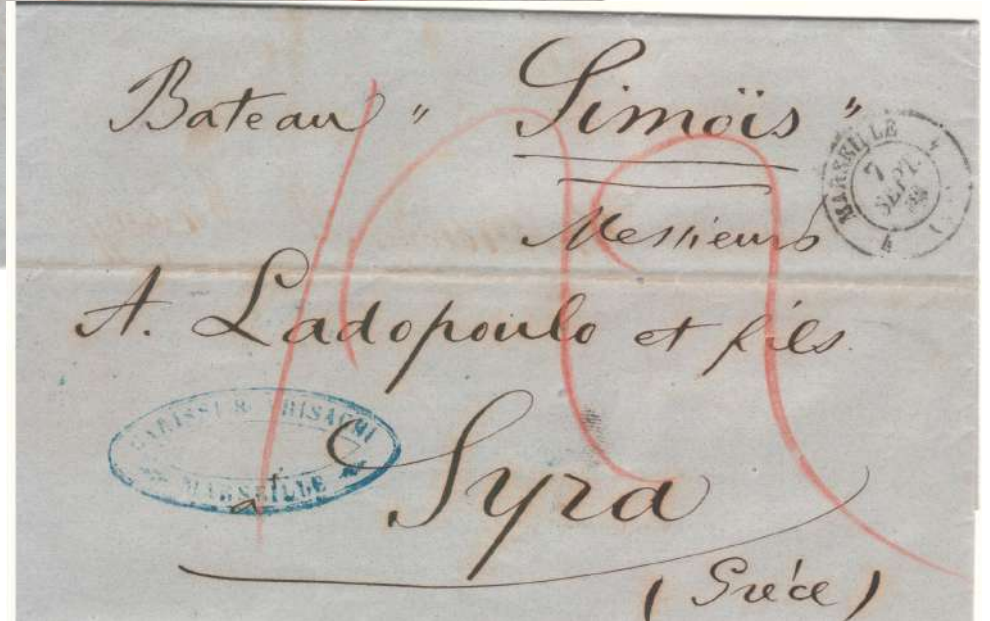 Bateau " Simoïs "
MARSEILLE
7
SEPT.
Messieurs
A. Ladopoulo et fils
MARSEILLE
à Syra
(Gréce)